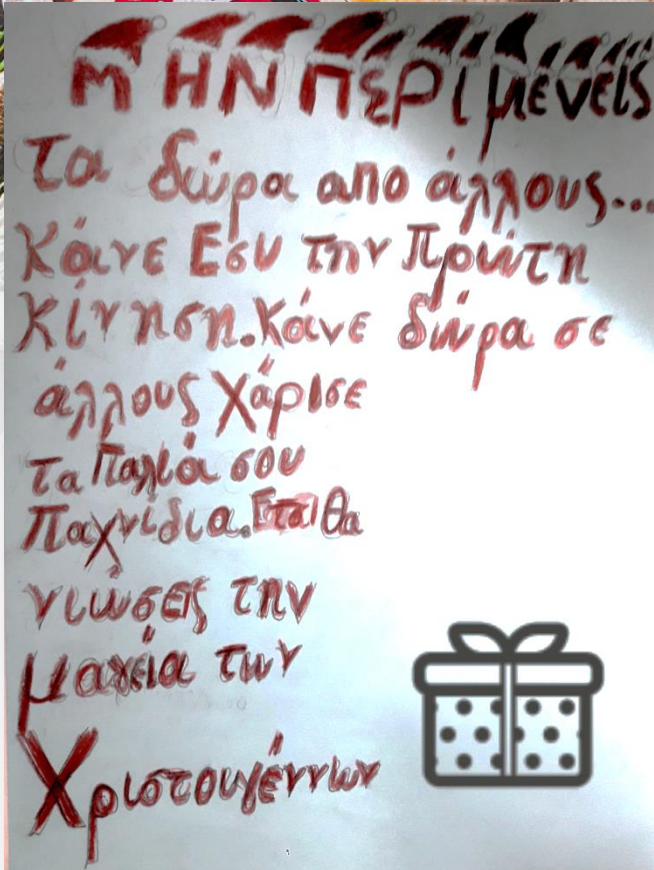 ΜΗΝ ΠεΡίμένεις
Τα δώρα απο άλλους...
Κάνε Εσυ την Πρώτη
Κίνηση. Κάνε δώρα σε
άλλους Χάρισε
τα Παλιά σου
Παχνίδια. Έτσι θα
νιώσεις την
μαγεία των
Χριστουγέννων